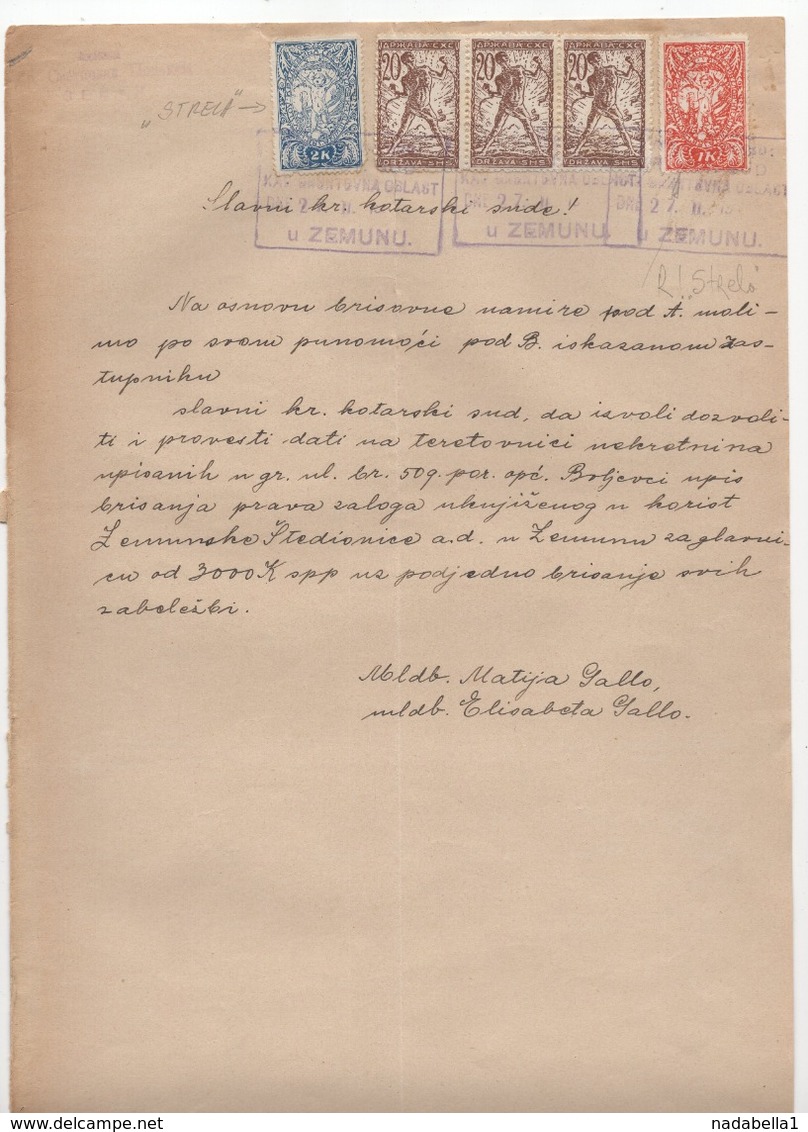 "STRELA" →
2K
ДРЖАВА СХС ДРЖАВА СХС ДРЖАВА СХС
20 20 20
DRŽAVA SHS DRŽAVA SHS DRŽAVA SHS
1K
GRUNTOVNA OBLAST
27. II.
u ZEMUNU. u ZEMUNU. u ZEMUNU.
Slavni kr. kotarski sude!
R! "Strela"
Na osnovu brisovne namire pod A. moli-
mo po svom punomoći pod B. iskazanom zas-
tupniku
slavni kr. kotarski sud, da izvoli dozvoli-
ti i provesti dati na teretovnici nekretnina
upisanih u gr. ul. br. 509. por. opć. Boljevci upis
brisanja prava zaloga uknjiženog u korist
Zemunske Štedionice a.d. u Zemunu za glavni-
cu od 3000K spp uz podjedno brisanje svih
zabeležbi.
Mldb. Matija Gallo,
mldb. Elisabeta Gallo.
delcampe.net
nadabella1